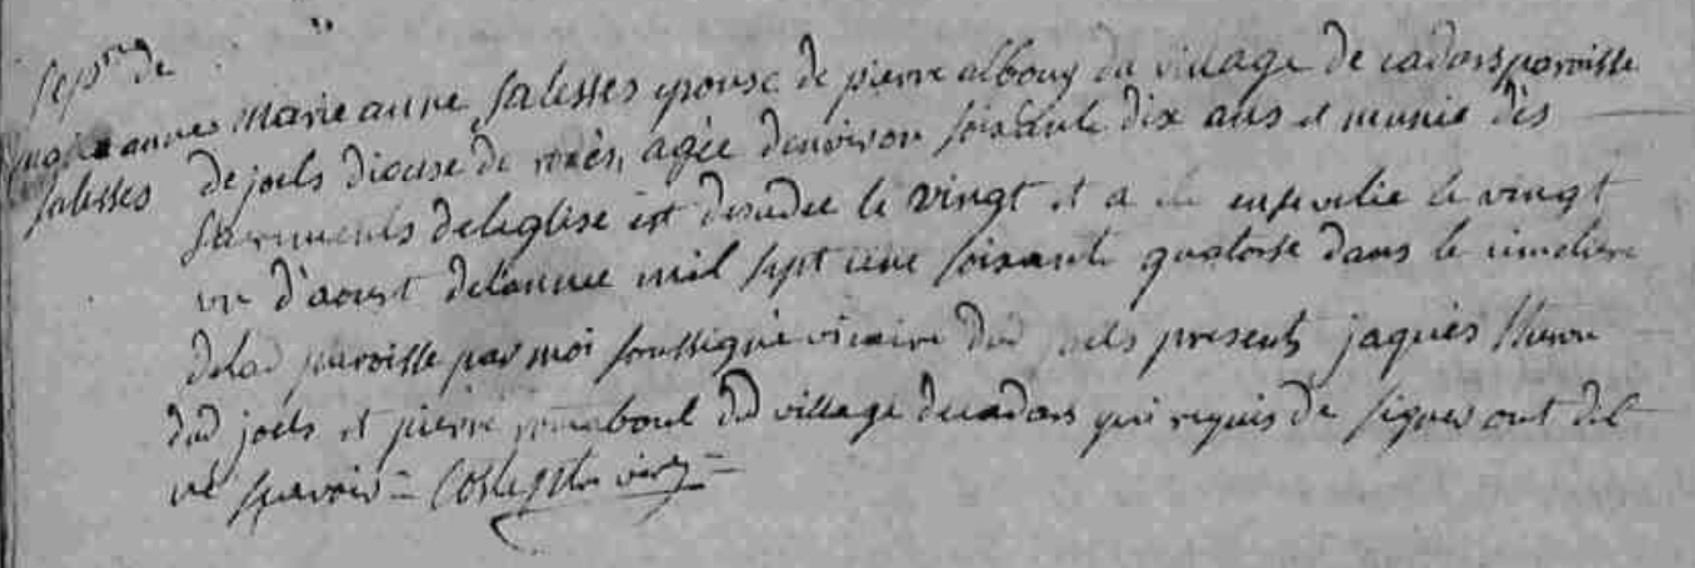 sepre de
marie anne
salesses
Marie anne salesses epouse de pierre albouy du village de cadars paroisse
de joels diocese de rodès, agée denviron soixante dix ans et munie dès
sacrements deleglise est decedee le vingt et a ete ensevelie le vingt
un d'aoust delannee mil sept cens soixante quatorse dans le cimetiere
delad paroisse par moi soussigné vicaire dud joels presents jaques
dud joels et pierre du village decadars qui requis de signer ont dit
né scavoir =